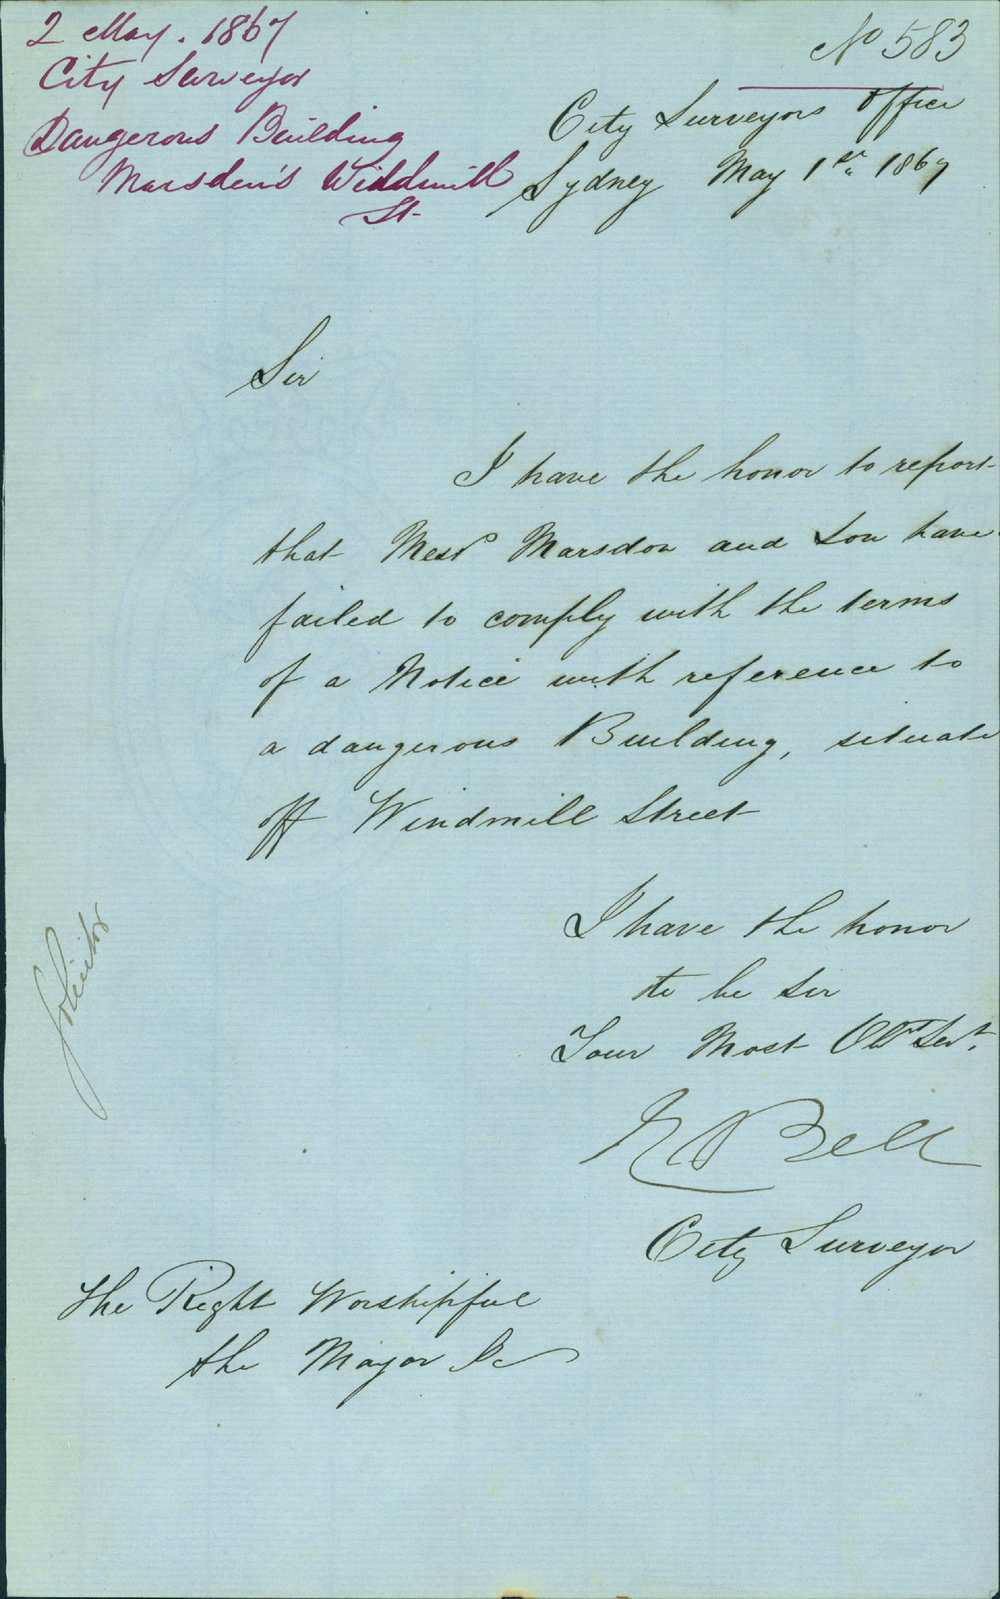 2 May. 1867
City Surveyor
Dangerous Building
Marsden's Widdmill
St
No 583
City Surveyors Office
Sydney May 1st 1867
Sir
I have the honor to report
that Messrs Marsdon and Son have
failed to comply with the terms
of a Notice with reference to
a dangerous Building, situate
off Windmill Street
I have the honor
to be Sir
Your Most Obt Servt.
Bell
City Surveyor
The Right Worshipful
the Mayor &c
Solicitor